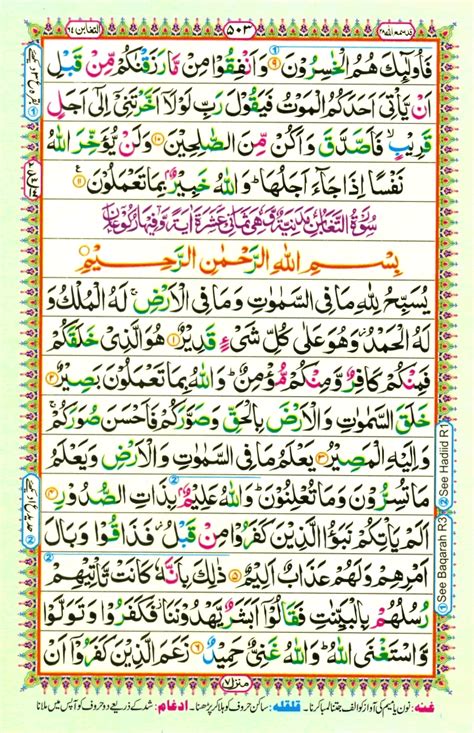 قد سمع اللہ ۲۸
۵۰۳
التغابن ۶۴
فَاُولٰٓئِكَ هُمُ الْخٰسِرُوْنَ ۹ وَاَنْفِقُوْا مِنْ مَّا رَزَقْنٰكُمْ مِّنْ قَبْلِ
اَنْ يَّاْتِيَ اَحَدَكُمُ الْمَوْتُ فَيَقُوْلَ رَبِّ لَوْلَاۤ اَخَّرْتَنِيْۤ اِلٰۤى اَجَلٍ
قَرِيْبٍ ۙ فَاَصَّدَّقَ وَاَكُنْ مِّنَ الصّٰلِحِيْنَ ۱۰ وَلَنْ يُّؤَخِّرَ اللّٰهُ
نَفْسًا اِذَا جَآءَ اَجَلُهَا ؕ وَاللّٰهُ خَبِيْرٌۢ بِمَا تَعْمَلُوْنَ ۱۱
سُوْرَةُ التَّغَابُنِ مَدَنِيَّةٌ وَّهِيَ ثَمَانِيَ عَشْرَةَ اٰيَةً وَّفِيْهَا رُكُوْعَانِ
بِسْمِ اللّٰهِ الرَّحْمٰنِ الرَّحِيْمِ
يُسَبِّحُ لِلّٰهِ مَا فِي السَّمٰوٰتِ وَمَا فِي الْاَرْضِ ۚ لَهُ الْمُلْكُ وَ
لَهُ الْحَمْدُ ؗ وَهُوَ عَلٰى كُلِّ شَيْءٍ قَدِيْرٌ ۱ هُوَ الَّذِيْ خَلَقَكُمْ
فَمِنْكُمْ كَافِرٌ وَّمِنْكُمْ مُّؤْمِنٌ ؕ وَاللّٰهُ بِمَا تَعْمَلُوْنَ بَصِيْرٌ ۲
خَلَقَ السَّمٰوٰتِ وَالْاَرْضَ بِالْحَقِّ وَصَوَّرَكُمْ فَاَحْسَنَ صُوَرَكُمْ ۚ
وَاِلَيْهِ الْمَصِيْرُ ۳ يَعْلَمُ مَا فِي السَّمٰوٰتِ وَالْاَرْضِ وَيَعْلَمُ
مَا تُسِرُّوْنَ وَمَا تُعْلِنُوْنَ ؕ وَاللّٰهُ عَلِيْمٌۢ بِذَاتِ الصُّدُوْرِ ۴
اَلَمْ يَاْتِكُمْ نَبَؤُا الَّذِيْنَ كَفَرُوْا مِنْ قَبْلُ ؗ فَذَاقُوْا وَبَالَ
اَمْرِهِمْ وَلَهُمْ عَذَابٌ اَلِيْمٌ ۵ ذٰلِكَ بِاَنَّهٗ كَانَتْ تَّاْتِيْهِمْ
رُسُلُهُمْ بِالْبَيِّنٰتِ فَقَالُوْۤا اَبَشَرٌ يَّهْدُوْنَنَا ؗ فَكَفَرُوْا وَتَوَلَّوْا
وَّاسْتَغْنَى اللّٰهُ ؕ وَاللّٰهُ غَنِيٌّ حَمِيْدٌ ۶ زَعَمَ الَّذِيْنَ كَفَرُوْۤا اَنْ
منزل ۷
غنہ: نون یا میم کی آواز کو الف جتنا لمبا کرنا۔ قلقلہ: ساکن حروف کو ہلا کر پڑھنا۔ ادغام: شد کے ذریعے دو حروف کو آپس میں ملانا
① See Baqarah R3 ② See Hadiid R1